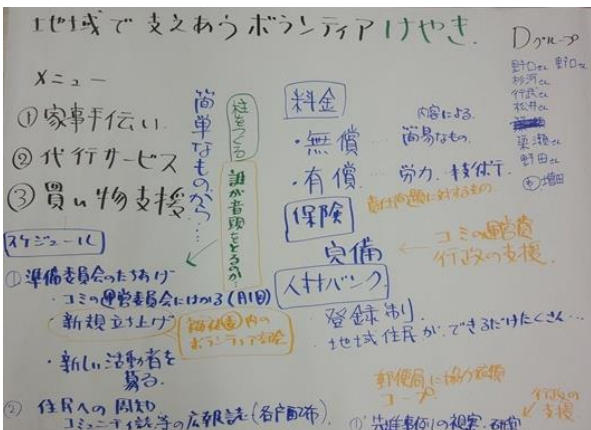 地域で支えあうボランティアけやき.
Dグループ
野口さん 野口さん
杉河さん
行武さん
松井さん
簗瀬さん
野田さん
増田
メニュー
①家事手伝い
②代行サービス
③買い物支援
簡単なものから……
柱をつくる
誰が音頭をとるのか…
料金
内容による.
・無償 … 簡易なもの.
・有償 … 労力、技術で
責任問題に対するもの
保険
完備
← コミの運営費
行政の支援.
人材バンク
登録制.
地域住民が、できるだけたくさん…
スケジュール
①準備委員会のたちあげ
・コミの運営委員会にはかる(月1回)
新規立ち上げ
内の
ボランティア部会
・新しい活動者を
募る.
② 住民への周知
コミュニティ誌等の広報誌(各戸配布).
郵便局に協力依頼
コープ
①'先進事例の視察・研究
行政の
支援